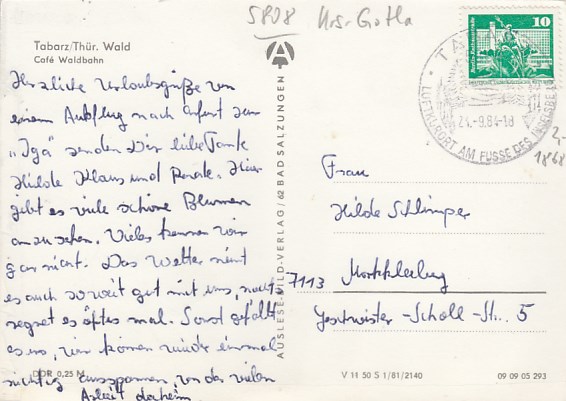 5808 Krs. Gotha
Tabarz/Thür. Wald
Café Waldbahn
Herzliche Urlaubsgrüße von
einem Ausflug nach Erfurt zur
"Iga" senden Dir liebe Tante
Hilde Klaus und Renate. Hier
gibt es viele schöne Blumen
anzusehen. Vieles kennen wir
gar nicht. Das Wetter meint
es auch soweit gut mit uns, nachts
regnet es öftes mal. Sonst gefällt
es uns, wir können wieder einmal
richtig ausspannen, von der vielen
Arbeit daheim.
DDR 0,25 M
AUSLESE-BILD-VERLAG/62 BAD SALZUNGEN
10
24.-9.84-18
LUFTKURORT AM FUSSE DES INSELSBERGES
2,-
1868
Frau
Hilde Schlimper
7113 Markkleeberg
Geschwister-Scholl-Str. 5
V 11 50 S 1/81/2140
09 09 05 293